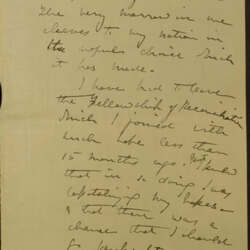 The very marrow in me
cleaves to my nation in
the popular choice which
it has made.
I have had to leave
the Fellowship of Reconciliation
which I joined with
much hope less than
15 months ago. 
that in so doing I was
capitalizing my
& that there was a
chance that I should